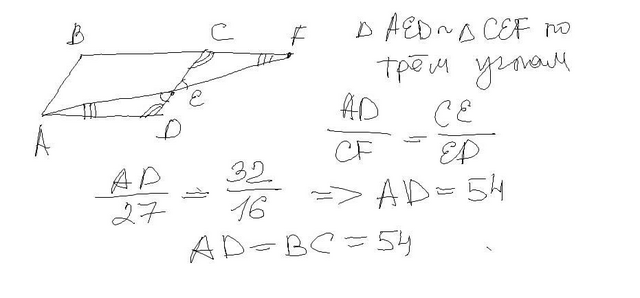 B C F
E
A D
△ AED ~ △ CEF по
трём углам
AD/CF = CE/ED
AD/27 = 32/16 => AD = 54
AD = BC = 54